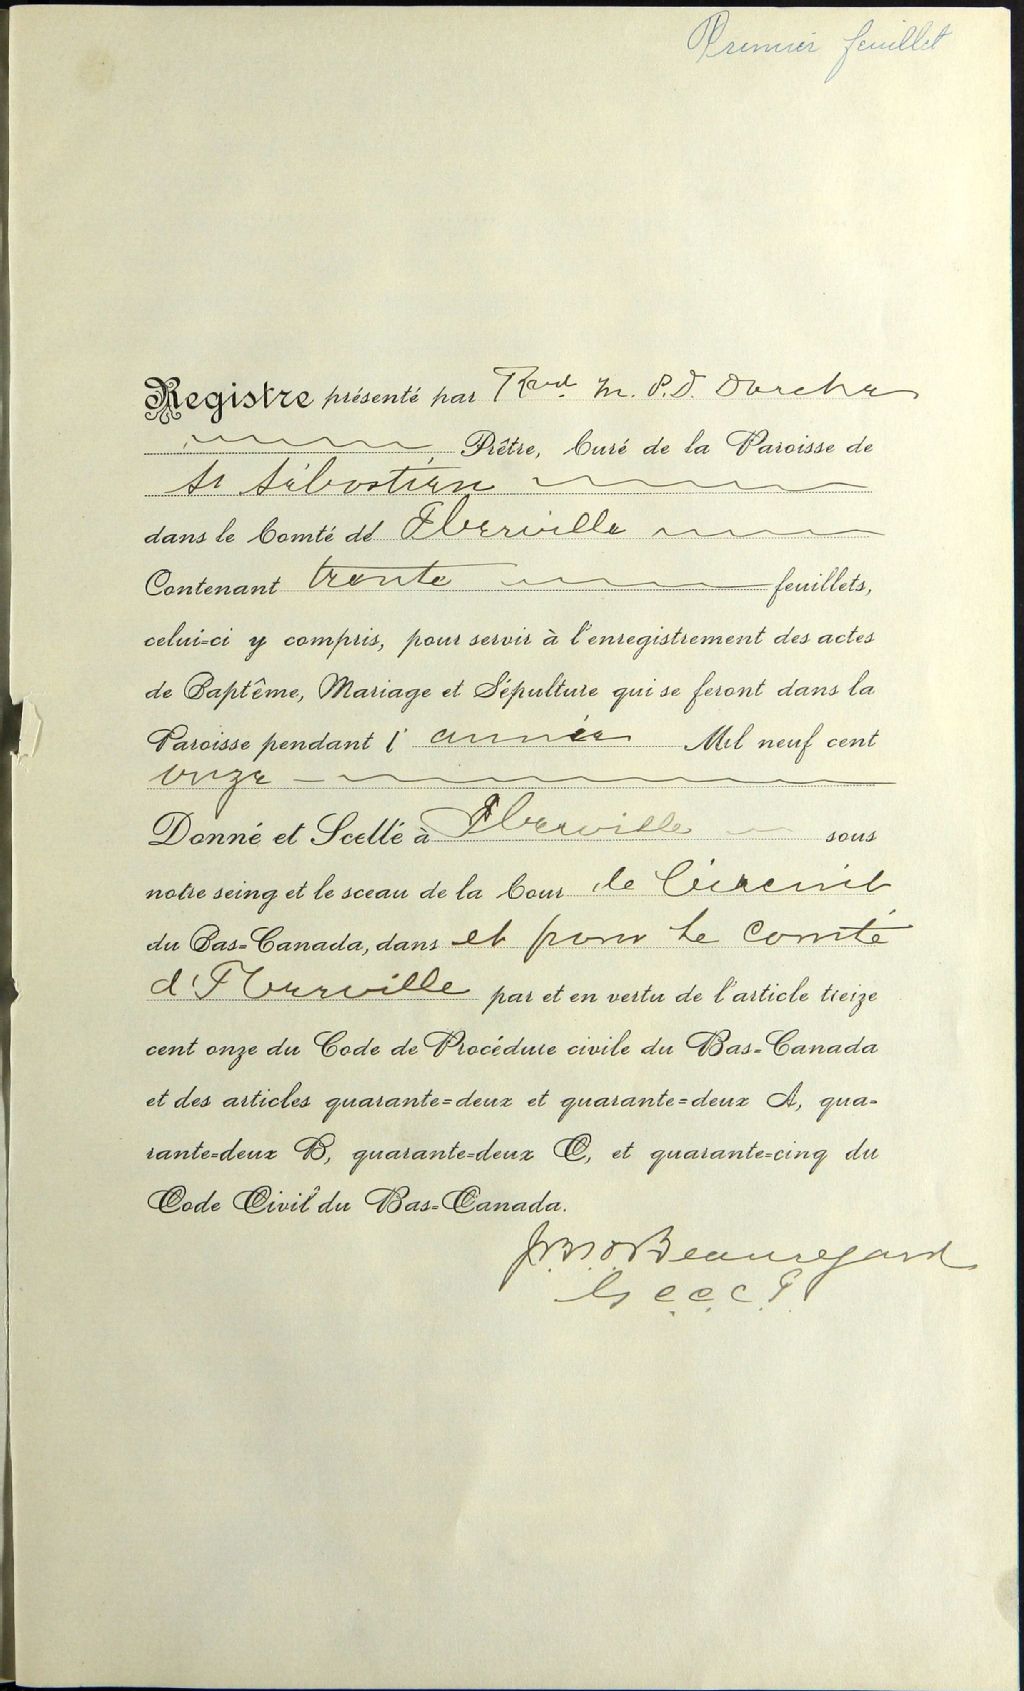 Premier feuillet
Registre présenté par Revd. M. P. D. Darche
Prêtre, Curé de la Paroisse de
St Sébastien
dans le Comté d' Iberville
Contenant trente feuillets,
celui=ci y compris, pour servir à l'enregistrement des actes
de Baptême, Mariage et Sépulture qui se feront dans la
Paroisse pendant l' année Mil neuf cent
onze
Donné et Scellé à Iberville sous
notre seing et le sceau de la Cour de Circuit
du Bas=Canada, dans et pour le comté
d'Iberville par et en vertu de l'article treize
cent onze du Code de Procédure civile du Bas=Canada
et des articles quarante=deux et quarante=deux A, qua-
rante=deux B, quarante=deux C, et quarante=cinq du
Code Civil du Bas=Canada.
Beauregard
G C. C. C. I.